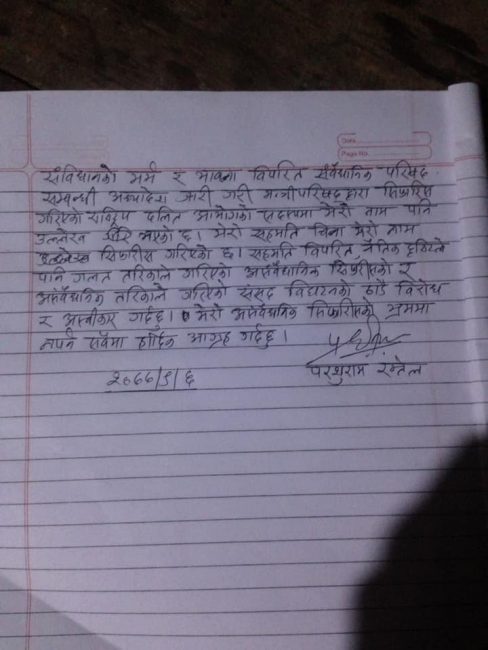 Date
Page No.
संविधानको मर्म र भावना विपरित संवैधानिक परिषद
सम्बन्धी अध्यादेश जारी गरी मन्त्रीपरिषद द्वारा सिफारिस
गरिएको राष्ट्रिय दलित आयोगको सदस्यमा मेरो नाम पनि
उल्लेख भएको छ। मेरो सहमति बिना मेरो नाम
सिफारीस गरिएको छ। सहमति विपरित नैतिक दृष्टिले
पनि गलत तरिकाले गरिएको असंवैधानिक सिफारीसको र
असंवैधानिक तरिकाले गरिएको संसद विघटनको ठाडै विरोध
र अस्वीकार गर्दछु। मेरो असंवैधानिक सिफारिसको भ्रममा
नपर्न सबैमा हार्दिक आग्रह गर्दछु।
२०७७/९/६
परशुराम रम्तेल